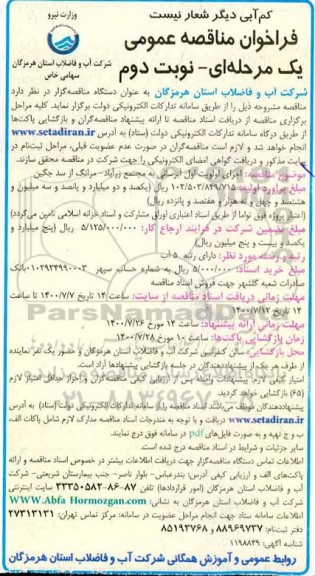 کم‌آبی دیگر شعار نیست
وزارت نیرو
شرکت آب و فاضلاب استان هرمزگان
سهامی خاص
فراخوان مناقصه عمومی
یک مرحله‌ای- نوبت دوم
شرکت آب و فاضلاب استان هرمزگان به عنوان دستگاه مناقصه‌گزار در نظر دارد
مناقصه مشروحه ذیل را از طریق سامانه تدارکات الکترونیکی دولت برگزار نماید. کلیه مراحل
برگزاری مناقصه از دریافت اسناد مناقصه تا ارائه پیشنهاد مناقصه‌گران و بازگشایی پاکت‌ها
از طریق درگاه سامانه تدارکات الکترونیکی دولت (ستاد) به آدرس www.setadiran.ir
انجام خواهد شد و لازم است مناقصه‌گران در صورت عدم عضویت قبلی، مراحل ثبت‌نام در
سایت مذکور و دریافت گواهی امضای الکترونیکی را جهت شرکت در مناقصه محقق سازند.
موضوع مناقصه: اجرای اولویت اول آبرسانی به مجتمع زیرآباد- مراتگ از سد جگین
مبلغ برآورد اولیه: ۱۰۲/۵۰۳/۸۴۹/۷۱۵ ریال (یکصد و دو میلیارد و پانصد و سه میلیون و
هشتصد و چهل و نه هزار و هفتصد و پانزده ریال)
(اعتبار پروژه فوق تواما از طریق اسناد اعتباری اوراق مشارکت و اسناد خزانه اسلامی تامین می‌گردد)
مبلغ تضمین شرکت در فرایند ارجاع کار: ۵/۱۲۵/۰۰۰/۰۰۰ ریال (پنج میلیارد و
یکصد و بیست و پنج میلیون ریال)
رتبه و رشته مورد نظر: دارای رتبه ۵ آب
مبلغ خرید اسناد: ۵/۰۰۰/۰۰۰ ریال به شماره حساب سپهر ۰۱۰۲۹۳۴۹۹۰۰۰۳ بانک
صادرات شعبه گلشهر جهت فروش اسناد مناقصه
مهلت زمانی دریافت اسناد مناقصه از سایت: ساعت ۱۴ تاریخ ۱۴۰۰/۷/۷ تا ساعت
۱۴ تاریخ ۱۴۰۰/۷/۱۲
مهلت زمانی ارائه پیشنهاد: ساعت ۱۴ مورخ ۱۴۰۰/۷/۲۶
زمان بازگشایی پاکت‌ها: ساعت ۱۰ مورخ ۱۴۰۰/۷/۲۸
محل بازگشایی: سالن کنفرانس شرکت آب و فاضلاب استان هرمزگان و حضور یک نفر نماینده
از طرف هر یک از پیشنهاددهندگان در جلسه بازگشایی پیشنهادها آزاد است.
(۶۵) بازگشایی خواهد گردید.
پیشنهاددهندگان باید اسناد مناقصه را از سامانه تدارکات الکترونیکی دولت (ستاد) به آدرس
www.setadiran.ir دریافت و با توجه به مندرجات اسناد مناقصه مدارک لازم شامل پاکات الف،
ب و ج تهیه و به صورت فایل‌های pdf در سامانه فوق درج نمایند.
سایر جزئیات و شرایط در اسناد مناقصه درج شده است.
اطلاعات تماس دستگاه مناقصه‌گزار جهت دریافت اطلاعات بیشتر در خصوص اسناد مناقصه و ارائه
پاکت‌های الف و ارزیابی کیفی آدرس: بندرعباس- بلوار ناصر- جنب بیمارستان شریعتی- شرکت
آب و فاضلاب استان هرمزگان (امور قراردادها) تلفن ۸۶-۸۷-۳۳۳۵۰۵۸۲ سایت اینترنتی
شرکت آب و فاضلاب استان هرمزگان به نشانی: WWW.Abfa Hormozgan.com
اطلاعات سامانه ستاد جهت انجام مراحل عضویت در سامانه: مرکز تماس تهران: ۲۷۳۱۳۱۳۱
دفتر ثبت‌نام: ۸۸۹۶۹۷۳۷ و ۸۵۱۹۳۷۶۸
شناسه آگهی: ۱۱۹۸۸۳۹
روابط عمومی و آموزش همگانی شرکت آب و فاضلاب استان هرمزگان